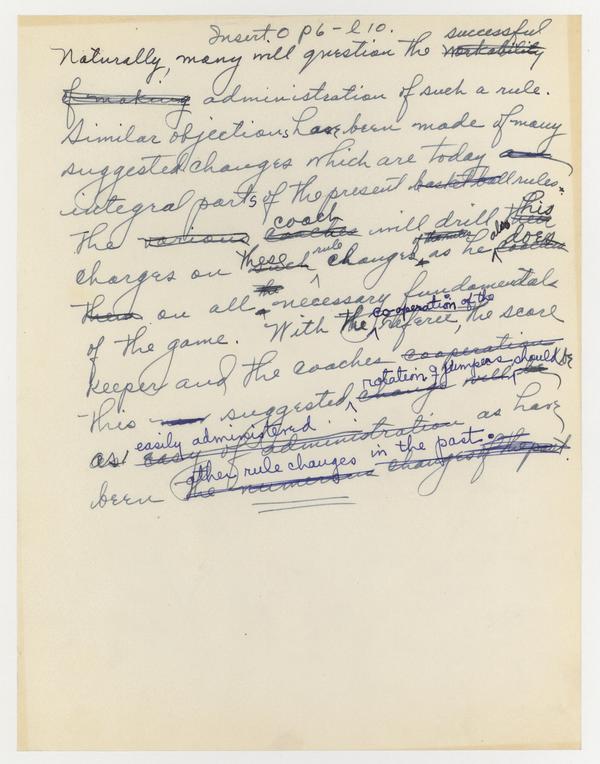 Insert. O p6 - l 10.
successful
Naturally, many will question the workability
of making administration of such a rule.
Similar objections have been made of many
suggested changes which are today an
integral parts of the present basketball rules.
coach this
The various coaches will drill
these rule also does
charges on such changes as he
them on all necessary fundamentals
co-operation of the
of the game. With the referee, the score
keeper and the coaches cooperation
rotation of jumpers should be
This suggested change will be
easily administered
as easy of administration as have
other rule changes in the past.
been the numerous changes of the past.